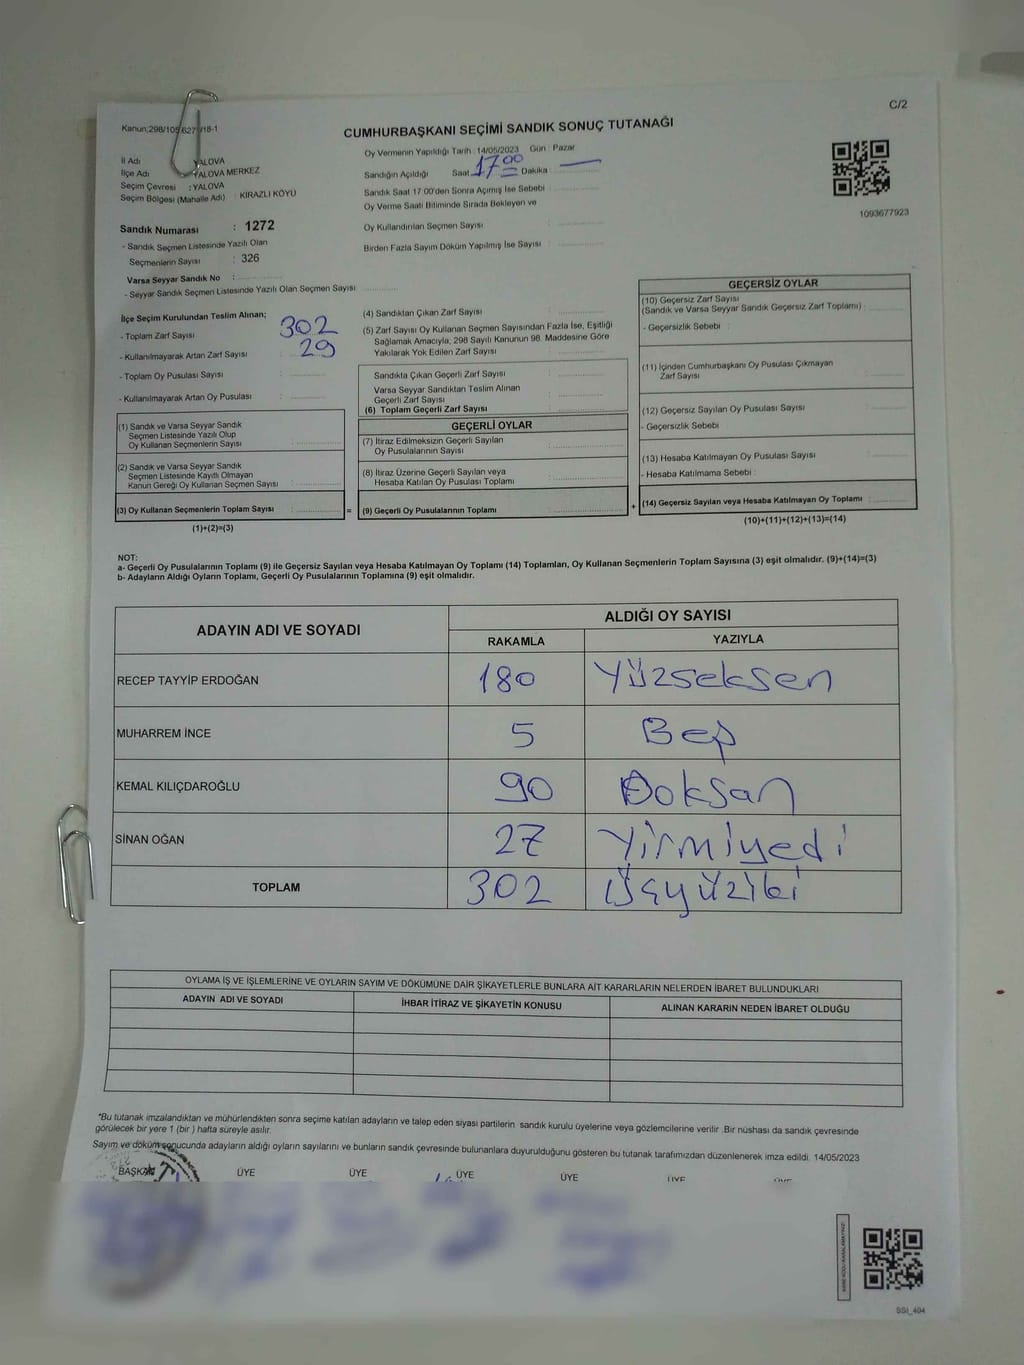 C/2
Kanun;298/105,627 /18-1
CUMHURBAŞKANI SEÇİMİ SANDIK SONUÇ TUTANAĞI
İl Adı YALOVA
İlçe Adı YALOVA MERKEZ
Seçim Çevresi :YALOVA
Seçim Bölgesi (Mahalle Adı) : KİRAZLI KÖYÜ
Oy Vermenin Yapıldığı Tarih : 14/05/2023 Gün : Pazar
Sandığın Açıldığı Saat 17 00 Dakika :
Sandık Saat 17.00'den Sonra Açılmış İse Sebebi :
Oy Verme Saati Bitiminde Sırada Bekleyen ve
Oy Kullandırılan Seçmen Sayısı :
Birden Fazla Sayım Döküm Yapılmış İse Sayısı :
1093677923
Sandık Numarası : 1272
- Sandık Seçmen Listesinde Yazılı Olan
Seçmenlerin Sayısı : 326
Varsa Seyyar Sandık No :
- Seyyar Sandık Seçmen Listesinde Yazılı Olan Seçmen Sayısı :
İlçe Seçim Kurulundan Teslim Alınan;
- Toplam Zarf Sayısı 302
- Kullanılmayarak Artan Zarf Sayısı 29
- Toplam Oy Pusulası Sayısı :
- Kullanılmayarak Artan Oy Pusulası :
(1) Sandık ve Varsa Seyyar Sandık
Seçmen Listesinde Yazılı Olup
Oy Kullanan Seçmenlerin Sayısı :
(2) Sandık ve Varsa Seyyar Sandık
Seçmen Listesinde Kayıtlı Olmayan
Kanun Gereği Oy Kullanan Seçmen Sayısı :
(3) Oy Kullanan Seçmenlerin Toplam Sayısı :
(1)+(2)=(3)
(4) Sandıktan Çıkan Zarf Sayısı :
(5) Zarf Sayısı Oy Kullanan Seçmen Sayısından Fazla İse, Eşitliği
Sağlamak Amacıyla, 298 Sayılı Kanunun 98. Maddesine Göre
Yakılarak Yok Edilen Zarf Sayısı :
Sandıkta Çıkan Geçerli Zarf Sayısı :
Varsa Seyyar Sandıktan Teslim Alınan
Geçerli Zarf Sayısı :
(6) Toplam Geçerli Zarf Sayısı :
=
GEÇERLİ OYLAR
(7) İtiraz Edilmeksizin Geçerli Sayılan
Oy Pusulalarının Sayısı :
(8) İtiraz Üzerine Geçerli Sayılan veya
Hesaba Katılan Oy Pusulası Toplamı :
(9) Geçerli Oy Pusulalarının Toplamı :
+
GEÇERSİZ OYLAR
(10) Geçersiz Zarf Sayısı
(Sandık ve Varsa Seyyar Sandık Geçersiz Zarf Toplamı) :
- Geçersizlik Sebebi :
(11) İçinden Cumhurbaşkanı Oy Pusulası Çıkmayan
Zarf Sayısı :
(12) Geçersiz Sayılan Oy Pusulası Sayısı :
- Geçersizlik Sebebi :
(13) Hesaba Katılmayan Oy Pusulası Sayısı :
- Hesaba Katılmama Sebebi :
(14) Geçersiz Sayılan veya Hesaba Katılmayan Oy Toplamı :
(10)+(11)+(12)+(13)=(14)
NOT:
a- Geçerli Oy Pusulalarının Toplamı (9) ile Geçersiz Sayılan veya Hesaba Katılmayan Oy Toplamı (14) Toplamları, Oy Kullanan Seçmenlerin Toplam Sayısına (3) eşit olmalıdır. (9)+(14)=(3)
b- Adayların Aldığı Oyların Toplamı, Geçerli Oy Pusulalarının Toplamına (9) eşit olmalıdır.
ADAYIN ADI VE SOYADI ALDIĞI OY SAYISI
RAKAMLA YAZIYLA
RECEP TAYYİP ERDOĞAN 180 Yüzseksen
MUHARREM İNCE 5 Beş
KEMAL KILIÇDAROĞLU 90 Doksan
SİNAN OĞAN 27 Yirmiyedi
TOPLAM 302 Üçyüziki
OYLAMA İŞ VE İŞLEMLERİNE VE OYLARIN SAYIM VE DÖKÜMÜNE DAİR ŞİKAYETLERLE BUNLARA AİT KARARLARIN NELERDEN İBARET BULUNDUKLARI
ADAYIN ADI VE SOYADI İHBAR İTİRAZ VE ŞİKAYETİN KONUSU ALINAN KARARIN NEDEN İBARET OLDUĞU
*Bu tutanak imzalandıktan ve mühürlendikten sonra seçime katılan adayların ve talep eden siyasi partilerin sandık kurulu üyelerine veya gözlemcilerine verilir .Bir nüshası da sandık çevresinde
görülecek bir yere 1 (bir ) hafta süreyle asılır.
Sayım ve döküm sonucunda adayların aldığı oyların sayılarını ve bunların sandık çevresinde bulunanlara duyurulduğunu gösteren bu tutanak tarafımızdan düzenlenerek imza edildi. 14/05/2023
BAŞKAN ÜYE ÜYE ÜYE ÜYE ÜYE ÜYE
SSI_404